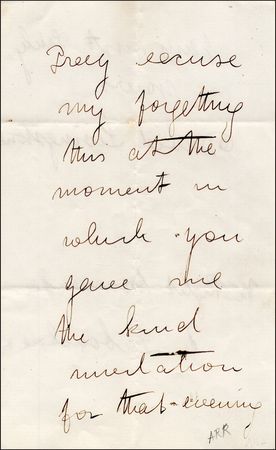 Pray excuse
my forgetting
this at the
moment in
which you
gave me
the kind
invitation
for that evening
ARR